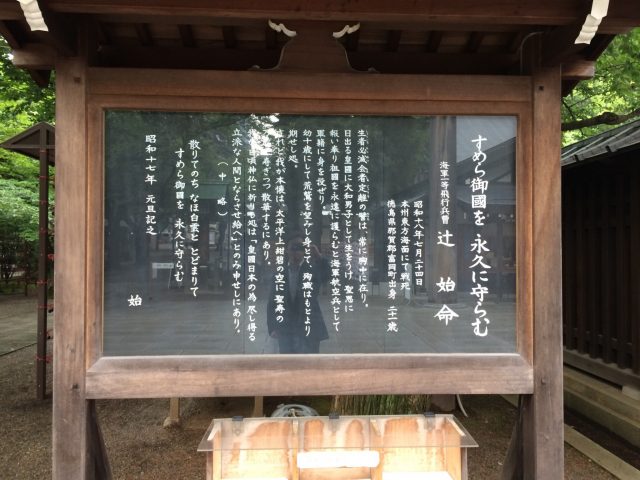 すめら御國を 永久に守らむ
海軍一等飛行兵曹 辻 始 命
昭和十八年七月二十四日
本州東方海面にて戦死
徳島縣那賀郡富岡町出身 二十一歳
生者必滅会者定離の譬は、常に胸中に在り。
日出る皇國に大和男子として生をうけ 聖恩に
報い奉り祖國を永遠に護らむと海軍航空兵として
軍籍に身を投ぜり。
幼十歳にして荒鷲を望みし身とて 殉職はもとより
期せし処。
されど我が本懐は、太平洋上紺碧の空に 聖寿の
萬歳を寿ぎつつ散華するにあり。
我が日頃神仏に祈りし処は「皇國日本の為 尽し得る
立派な人間とならせ給へ」とのみ申せしにあり。
（中 略）
散りてのち なほ白雲と とどまりて
すめら御國を 永久に守らむ
昭和十七年 元旦記之
始